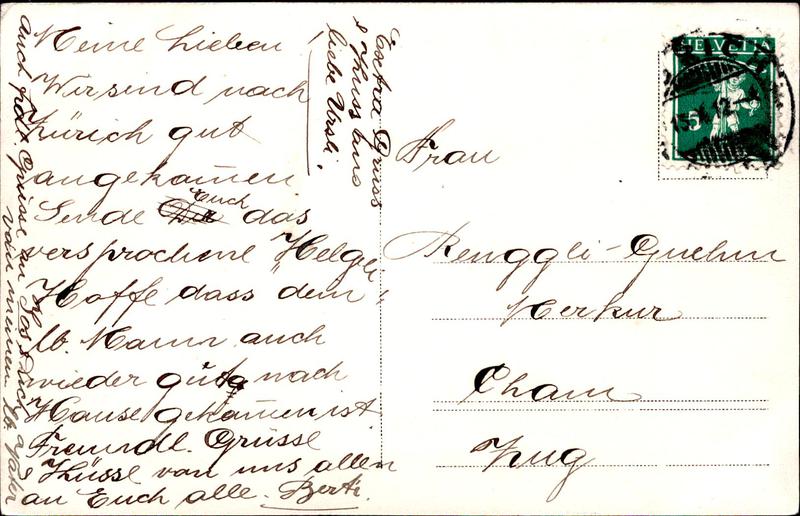 Meine Lieben!
Wir sind nach
Zürich gut
angekom̅en
Sende Euch das
versprochene "Helgeli"
Hoffe dass dein
lb. Mann auch
wieder gut nach
Hause gekom̅en ist
Freundl. Grüsse
& Küsse von uns allen
an Euch alle. Berti.
Extra Gruss
& Kuss ans
liebe Ursli.
auch frdl. Grüsse an Jos & Dich
von meinem lb. Vater
HELVETIA
5
Frau
Renggli-
Merkur
Cham
Zug